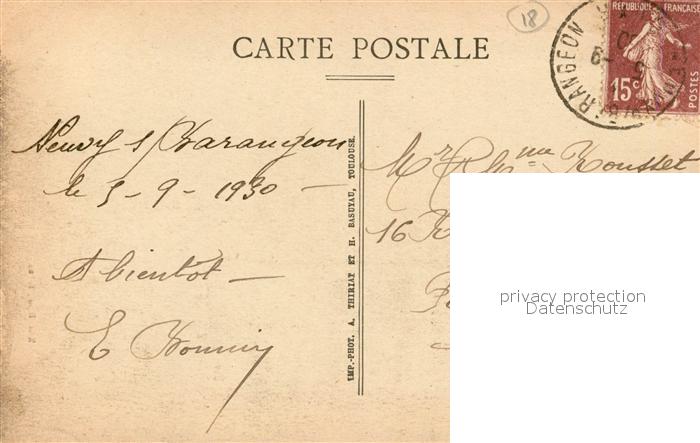 18
RÉPUBLIQUE FRANÇAISE
15c
POSTES
RANGEON
CARTE POSTALE
Neuvy s/ Barangeon
le 5-9-1930 —
A bientôt —
E
IMP.-PHOT. A. THIRIAT ET H. BASUYAU, TOULOUSE.
Mr & Mme Rousset
16 R
privacy protection
Datenschutz